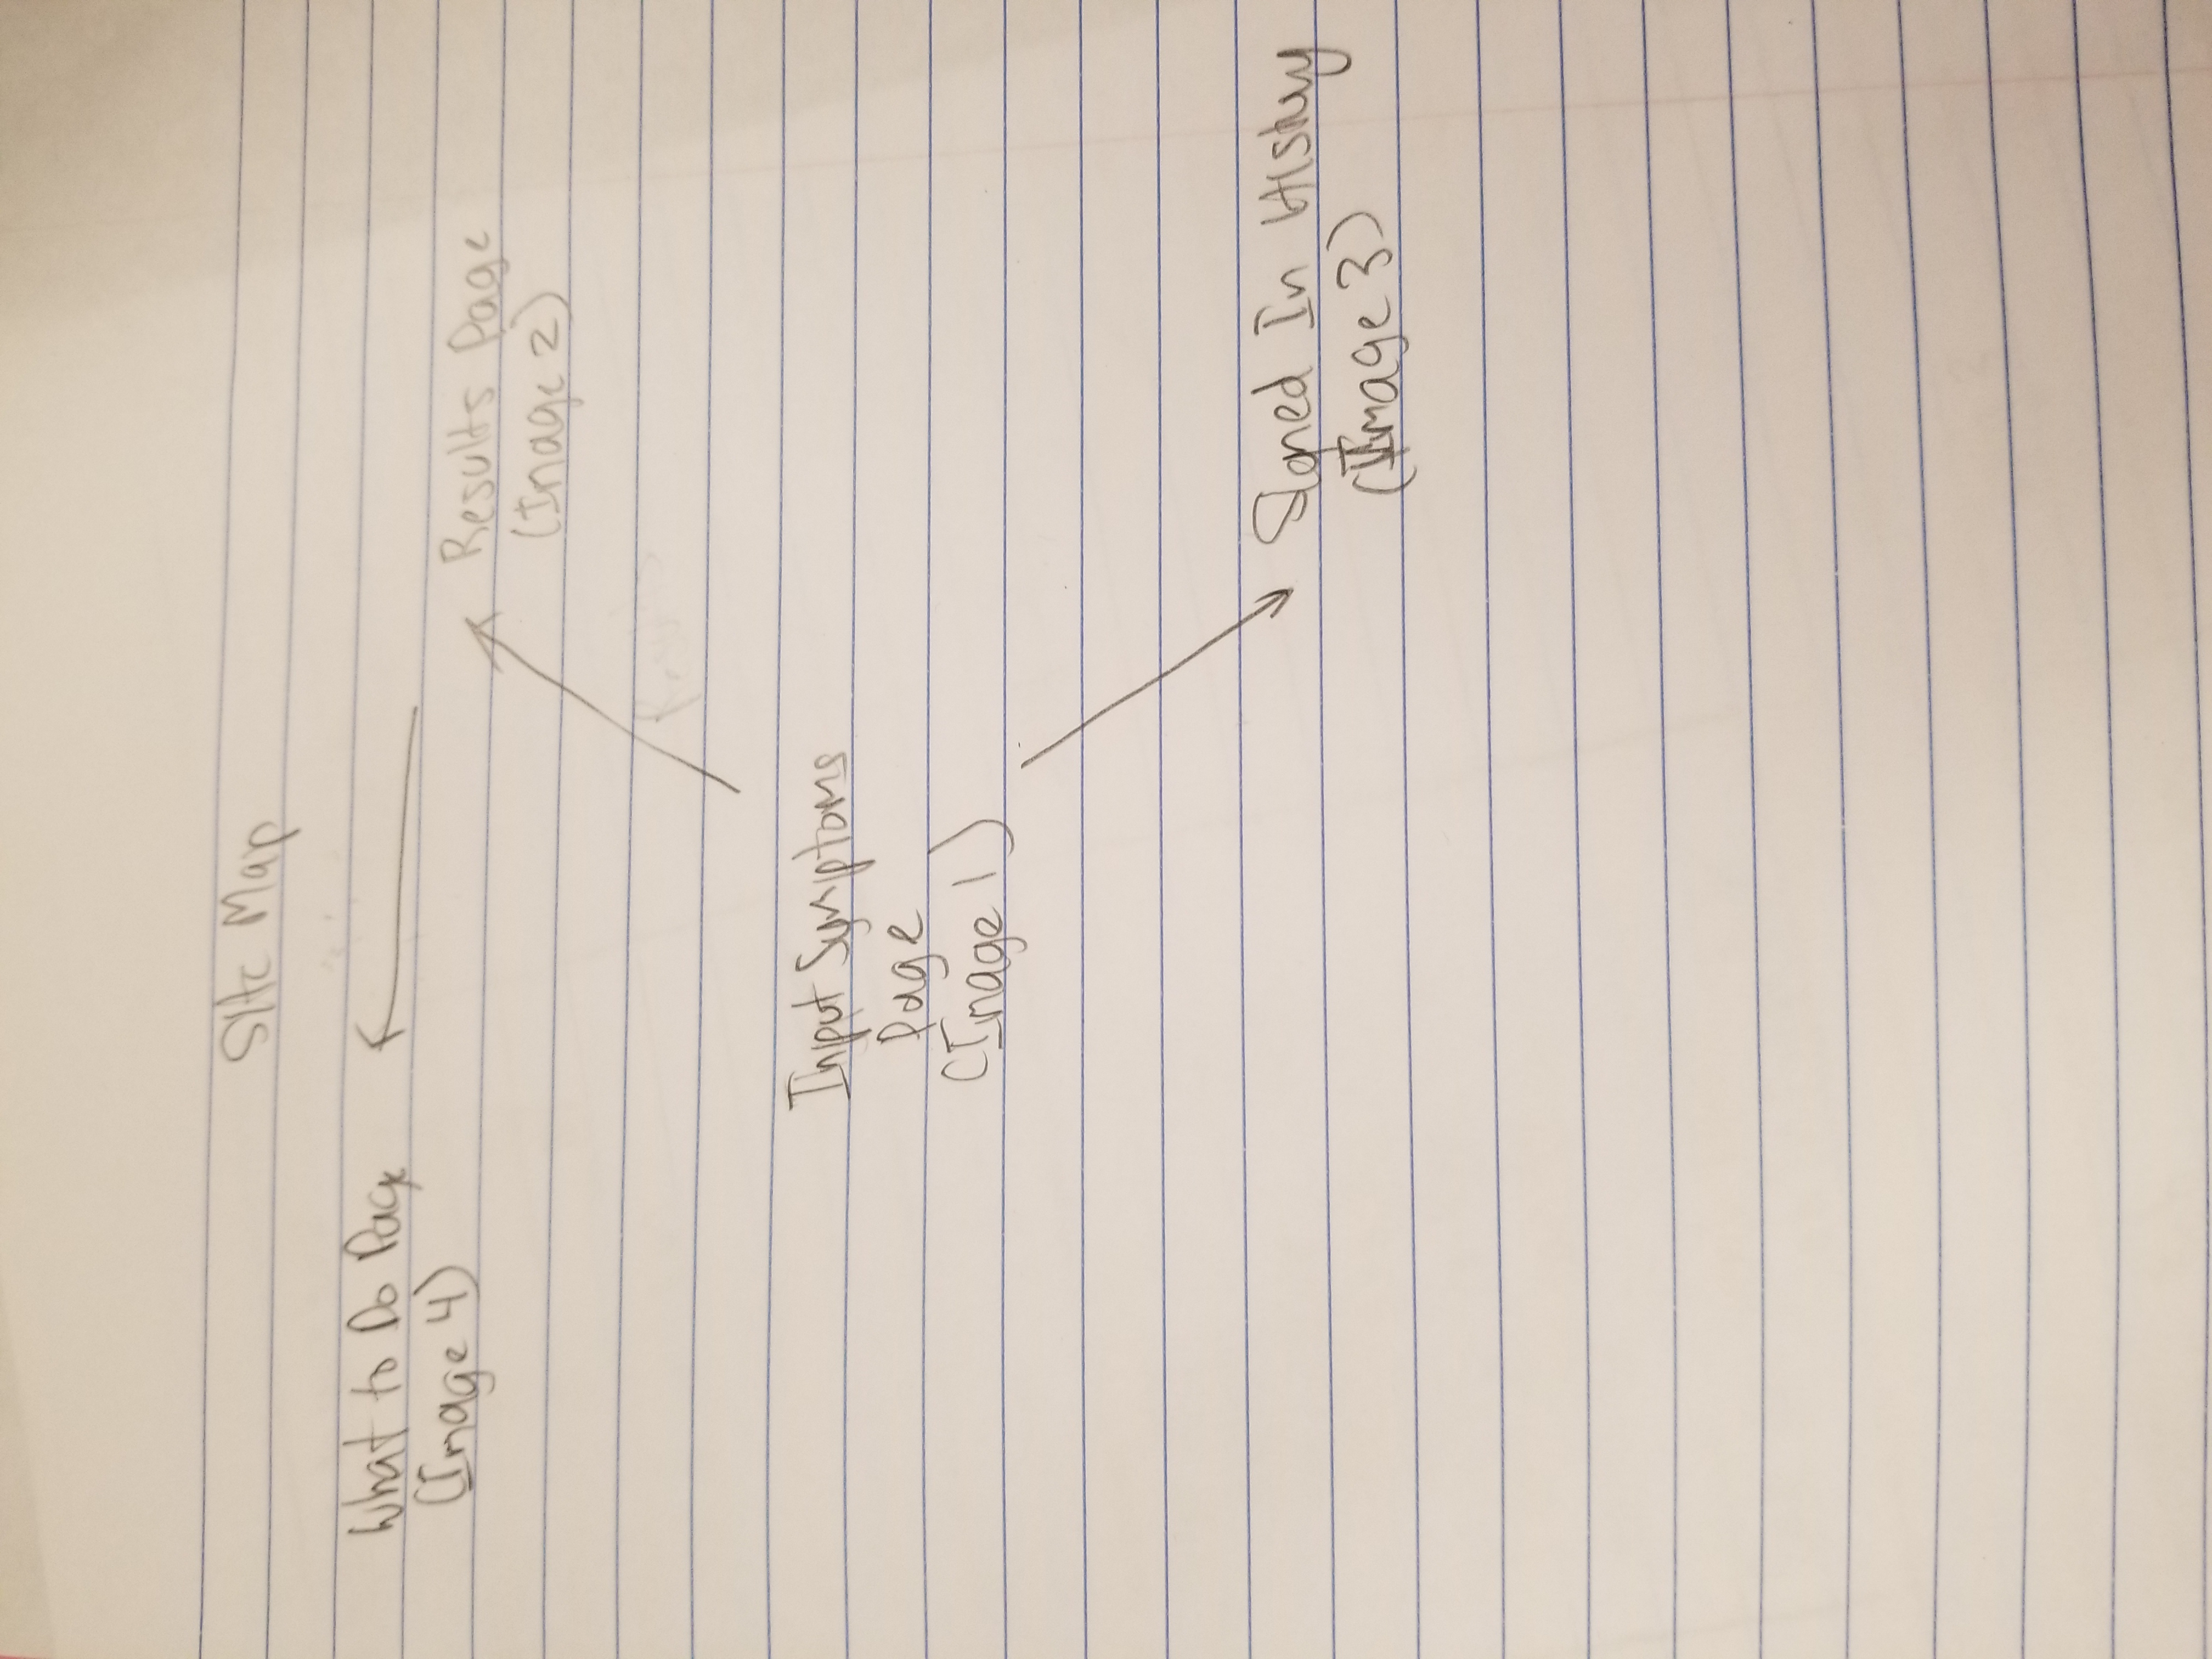 Site Map
What to Do Page
(Image 4)
Results Page
(Image 2)
Results
Input Symptoms
Page
(Image 1)
Signed In History
(Image 3)